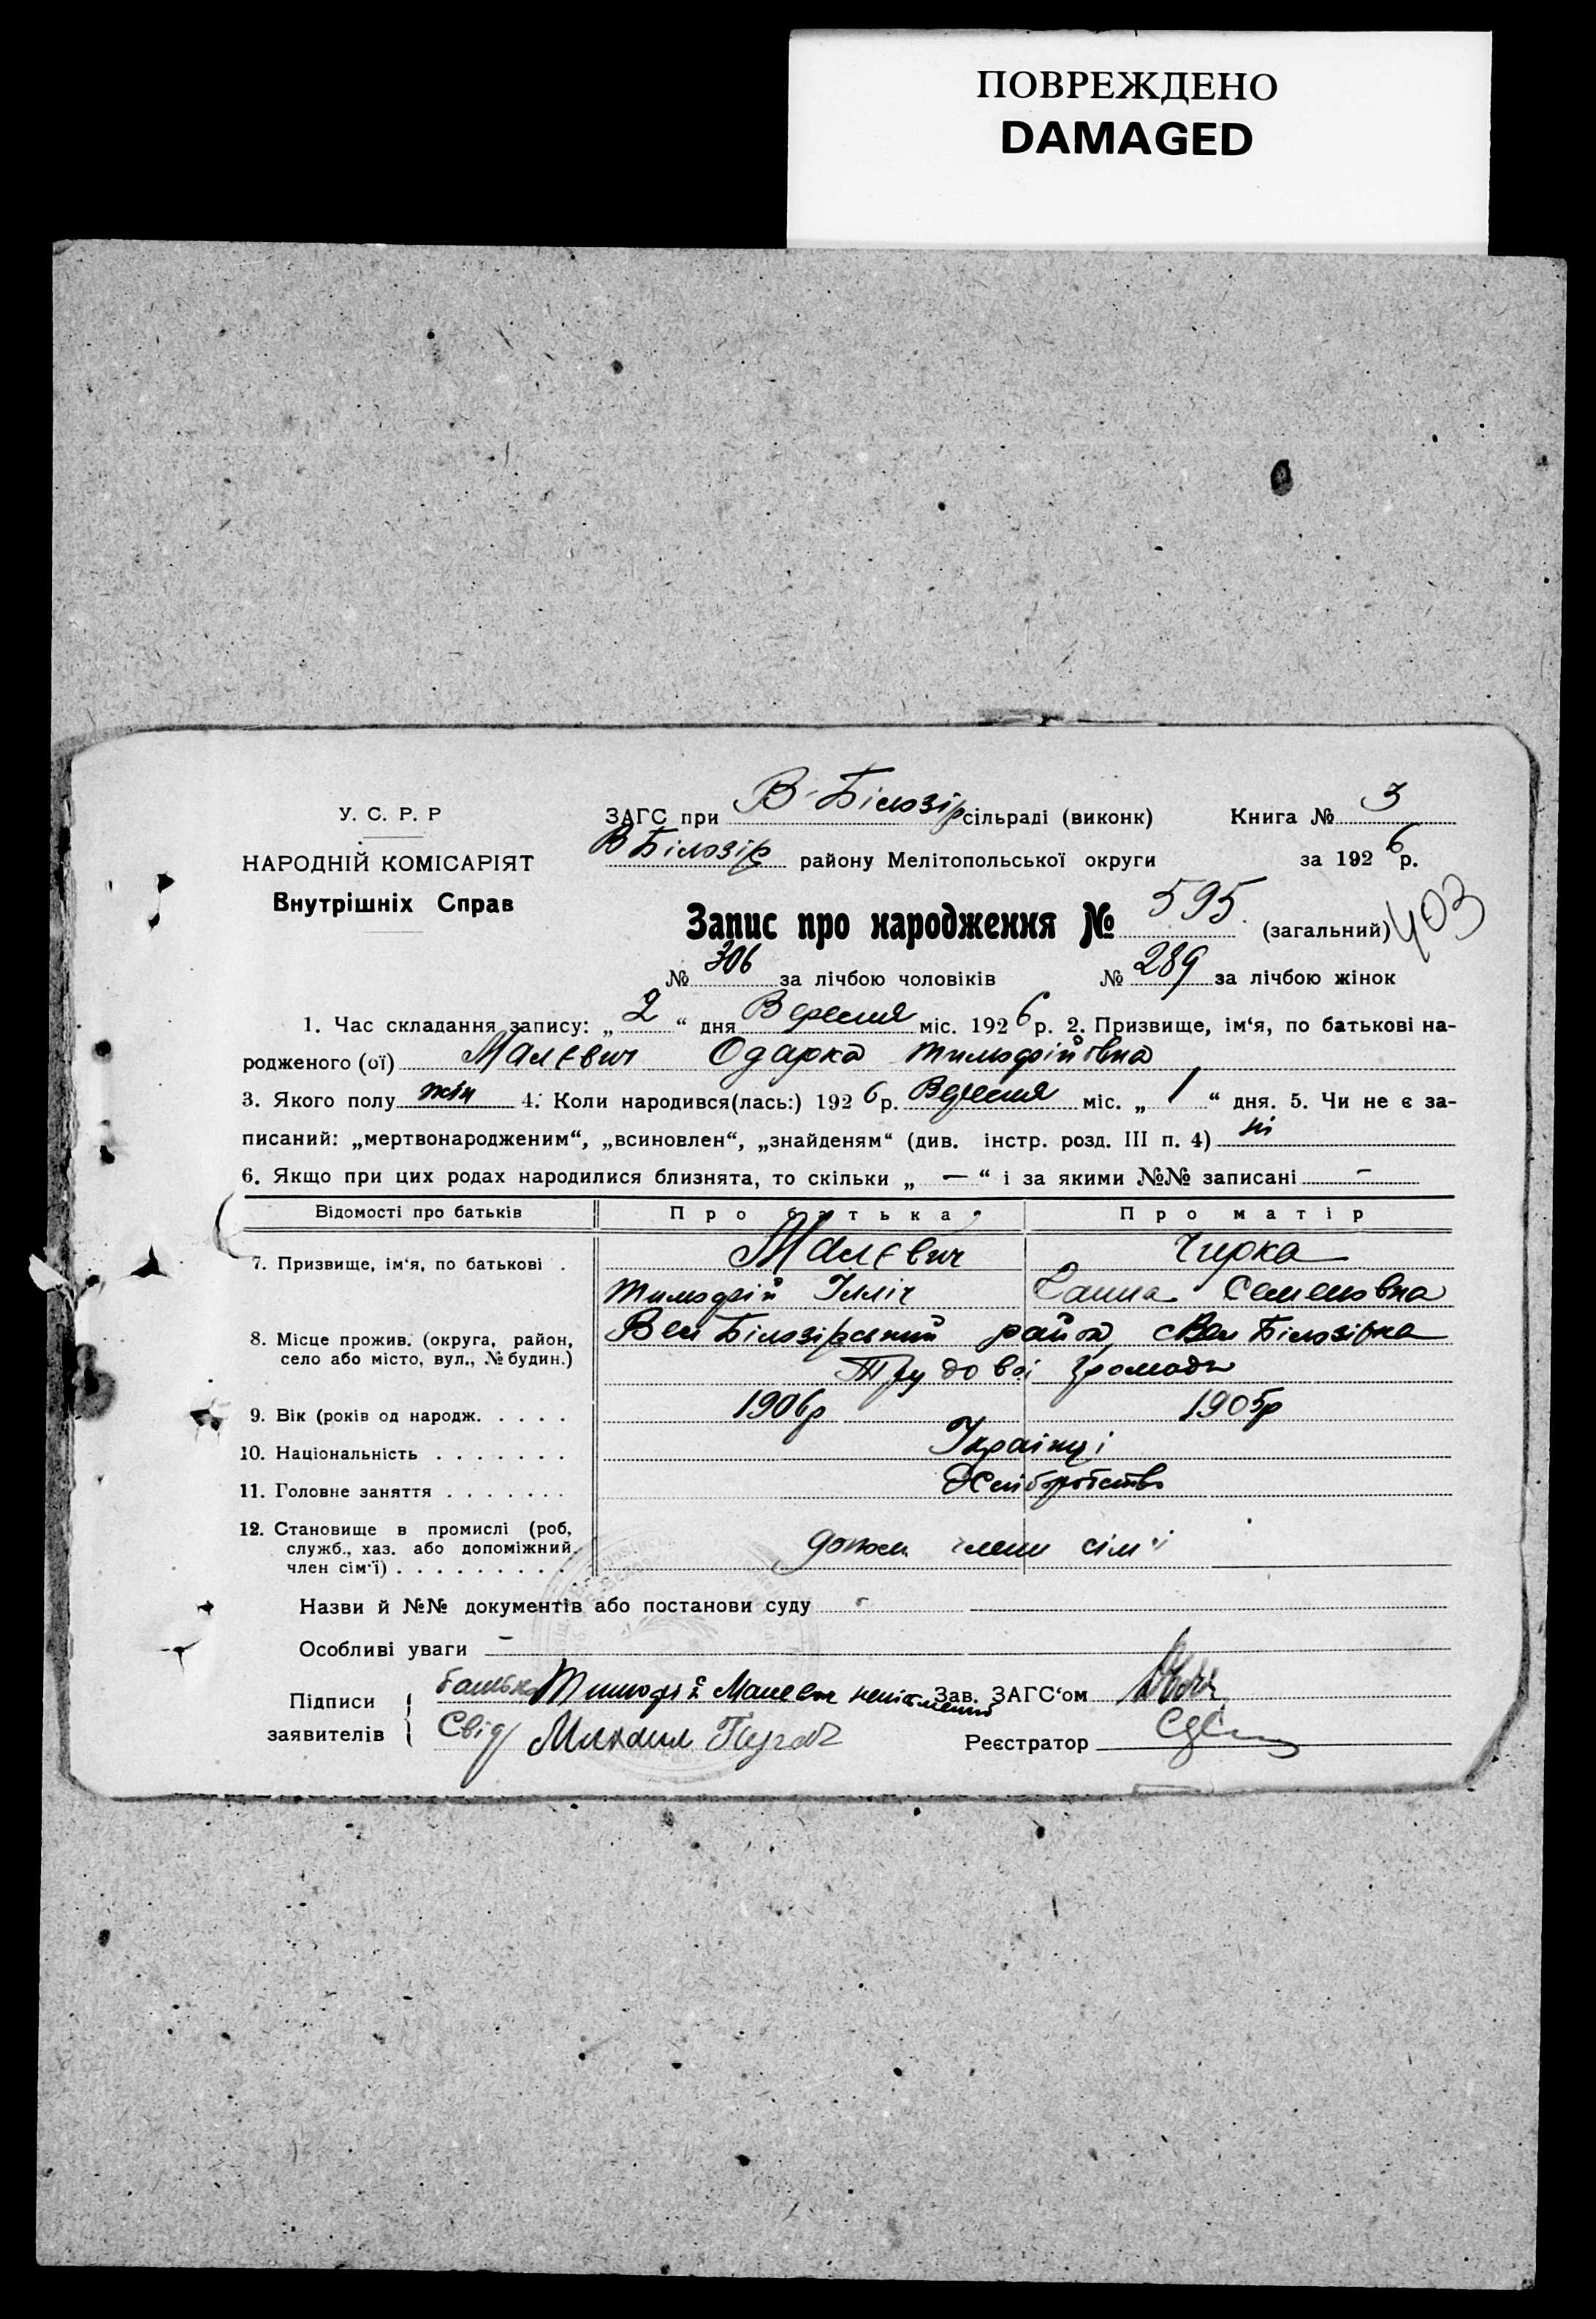 ПОВРЕЖДЕНО
DAMAGED
У. С. Р. Р
НАРОДНІЙ КОМІСАРІЯТ
Внутрішніх Справ
ЗАГС при В-Білозір сільраді (виконк) Книга № 3
В Білозір району Мелітопольської округи за 1926 р.
Запис про народження № 595 (загальний) 403
№ 306 за лічбою чоловіків № 289 за лічбою жінок
1. Час складання запису: „ 2 “ дня Вересня міс. 1926 р. 2. Призвище, ім‘я, по батькові на-
родженого (ої) Малєвич Одарка Тимофійовна
3. Якого полу жін 4. Коли народився(лась:) 1926 р. Вересня міс. „ 1 “ дня. 5. Чи не є за-
писаний: „мертвонародженим“, „всиновлен“, „знайденям“ (див. інстр. розд. III п. 4) ні
6. Якщо при цих родах народилися близнята, то скільки „ — “ і за якими №№ записані -
Відомості про батьків Про батька Про матір
7. Призвище, ім‘я, по батькові . Малєвич Чирка
Тимофій Ілліч Ганна Семеновна
8. Місце прожив. (округа, район, село або місто, вул., № будин.) Вел Білозірський район, с Вел Білозірка
Трудової громади
9. Вік (років од народж. . . . . 1906р 1905р
10. Національність . . . . . . . Українці
11. Головне заняття . . . . . . . Хліборобство
12. Становище в промислі (роб,
служб., хаз. або допоміжний.
член сім‘ї) . . . . . . . . . допом. члени сім'ї
Назви й №№ документів або постанови суду -
Особливі уваги -
Підписи батько Тимофій Малевич неписменний Зав. ЗАГС‘ом
заявителів Свід Михаил Реєстратор